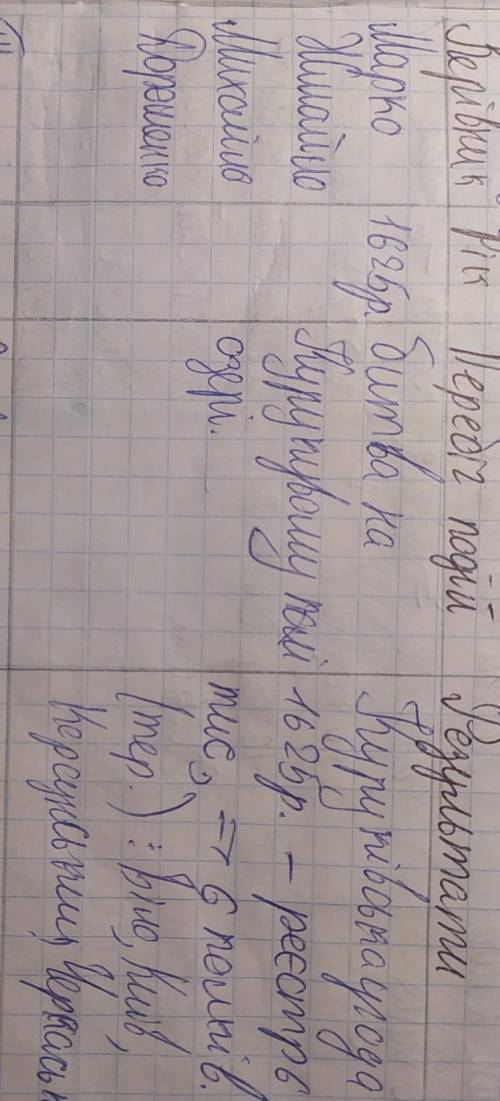 Керівник рік Перебіг подій Результати
Марко 1625р. битва на Куруківська угода
Жмайло Куруківому полі 1625р. – реєстр 6
Михайло озері. тис, => 6 полків.
Дорошенко (тер.) : Біло, Київ,
Корсунський, Черкаськ